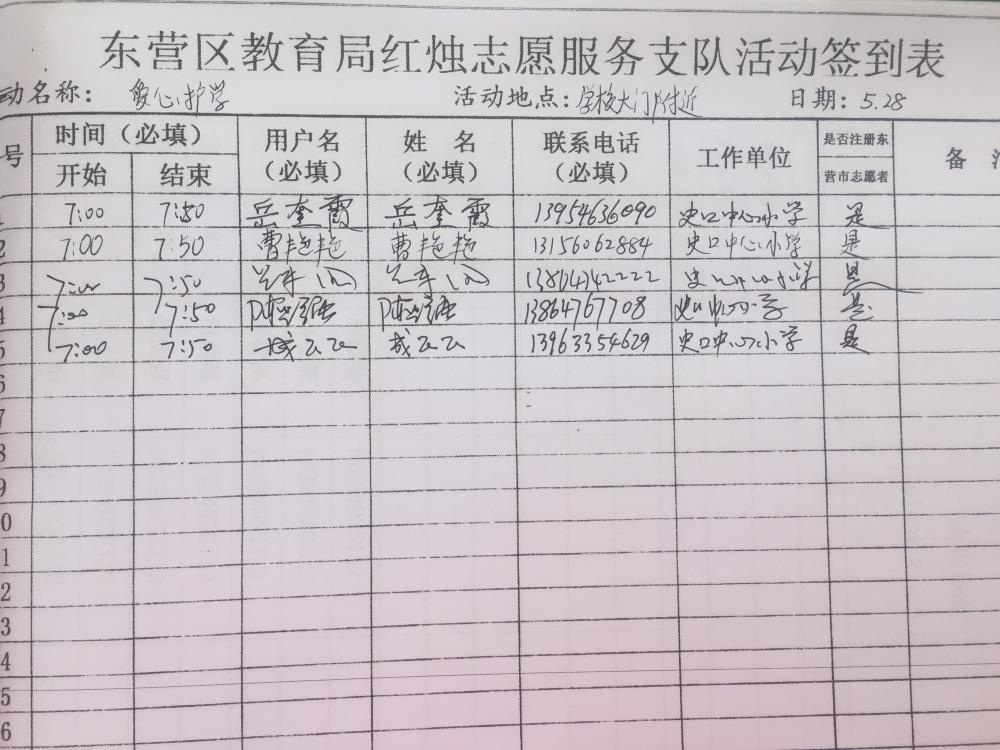 东营区教育局红烛志愿服务支队活动签到表
动名称: 爱心护学 活动地点: 学校大门附近 日期: 5.28
号 时间（必填） 用户名（必填） 姓 名（必填） 联系电话（必填） 工作单位 是否注册东营市志愿者 备
开始 结束
7:00 7:50 岳奎霞 岳奎霞 13954636090 史口中心小学 是
2 7:00 7:50 曹艳艳 曹艳艳 13156062884 史口中心小学 是
3 7:00 7:50 史口中心小学 是
4 7:00 7:50 13864767708 史口中心小学 是
5 7:00 7:50 13963354629 史口中心小学 是
6
7
8
9
0
1
2
3
4
5
6